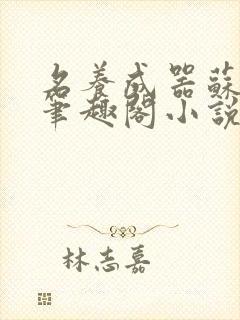 名養成器蘇
筆趣閣小說
林志嘉